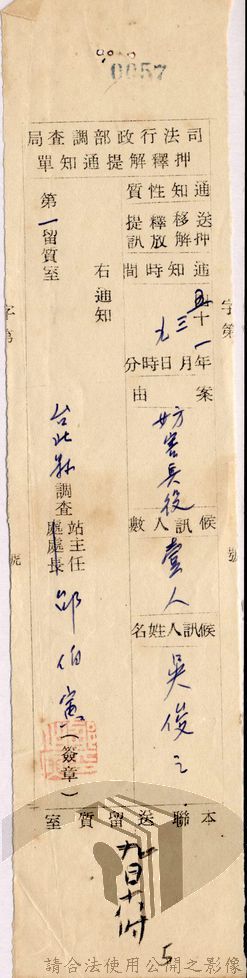 0057
司法行政部調查局
押釋解提通知單
通知性質
送押
移解
釋放
提訊
通知時間
五十一年三月九日時分
案由
妨害兵役
候訊人數
壹人
候訊人姓名
吳俊之
右通知
第一留質室
台北縣調查
站主任
處處長
邱伯寅(簽章)
本聯送留質室
九日十六付
5
字第
號
字第
號
請合法使用公開之影像